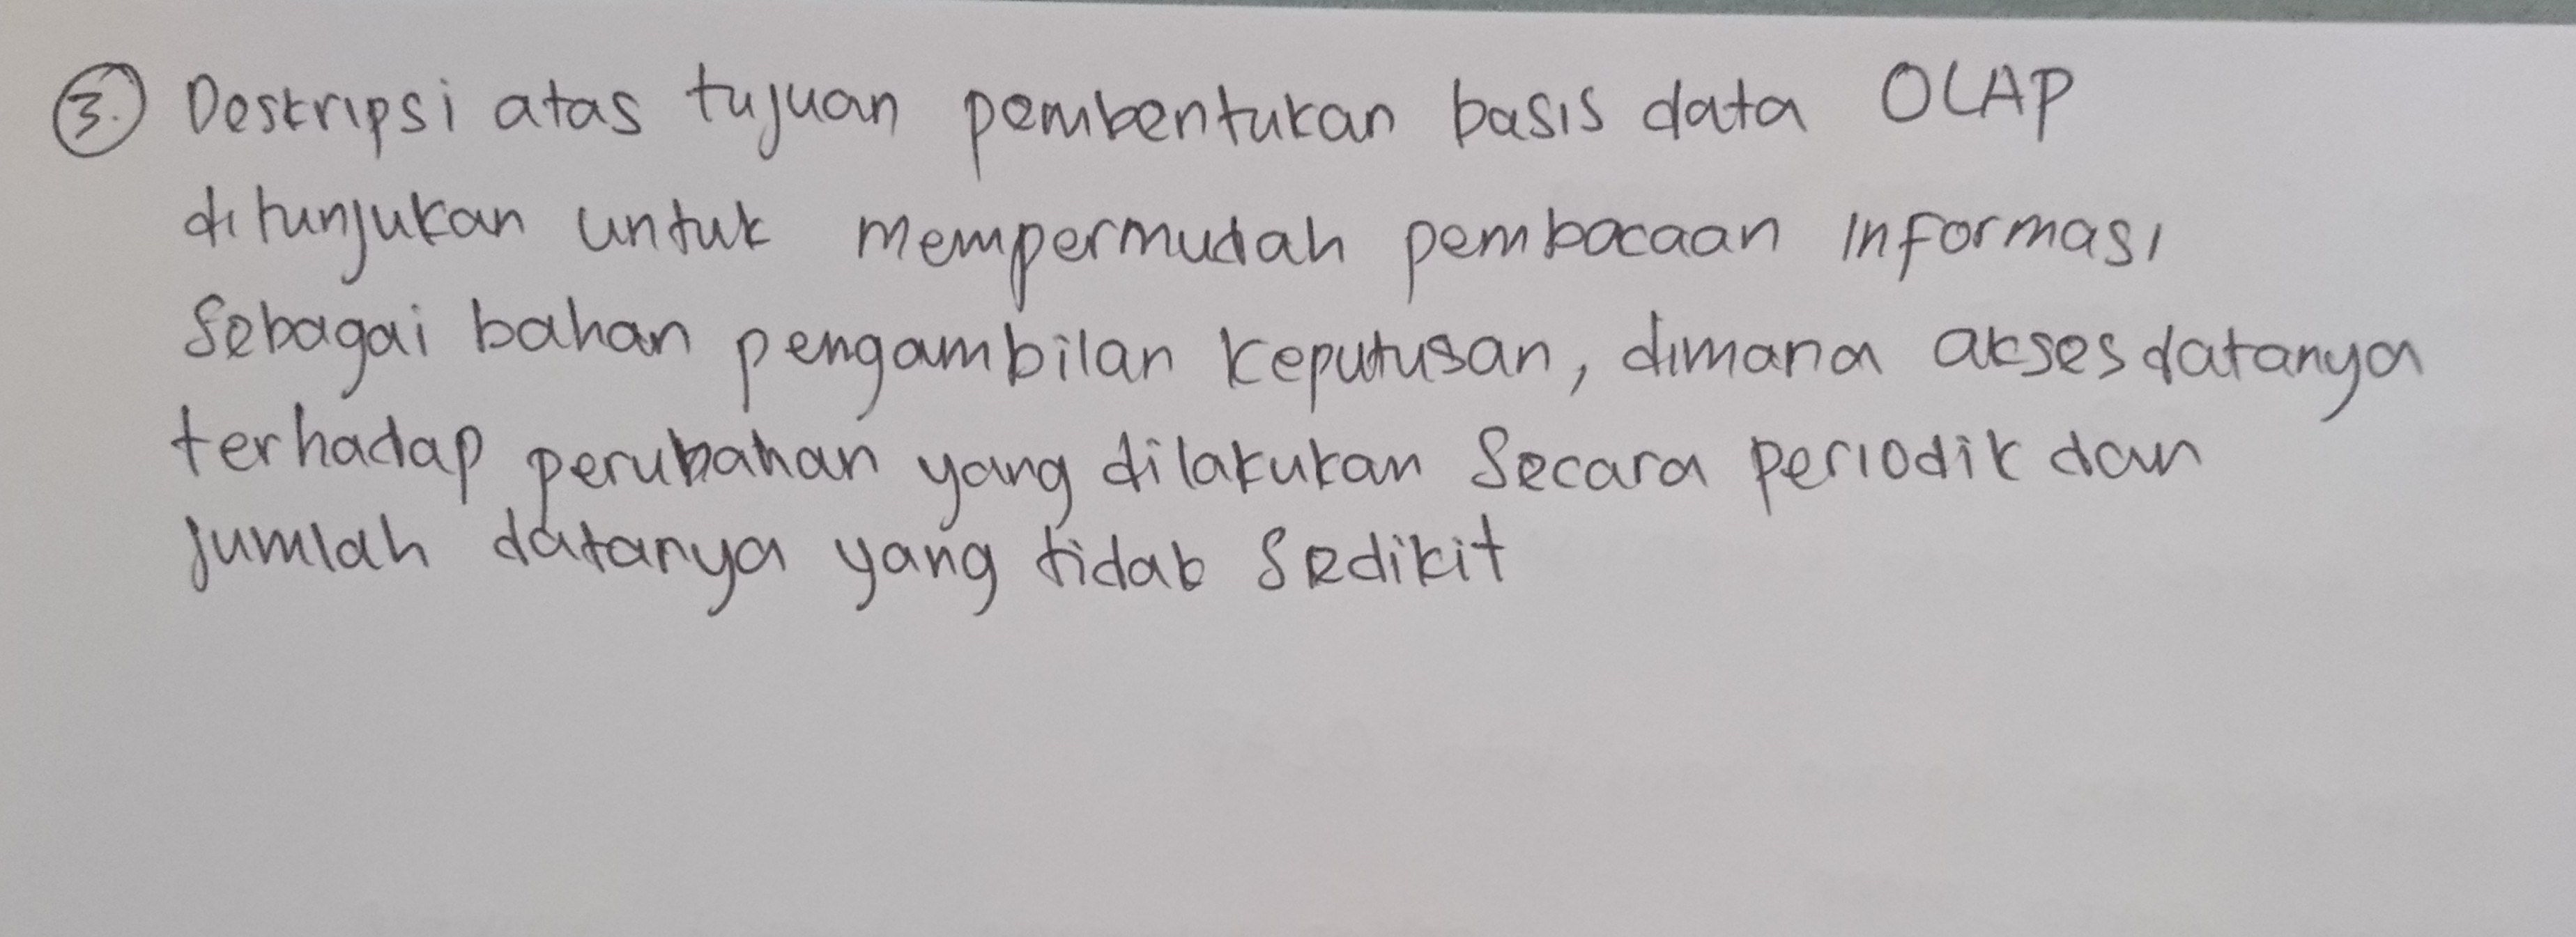 3. Deskripsi atas tujuan pembentukan basis data OLAP
ditunjukan untuk mempermudah pembacaan informasi
sebagai bahan pengambilan keputusan, dimana akses datanya
terhadap perubahan yang dilakukan secara periodik dan
jumlah datanya yang tidak sedikit